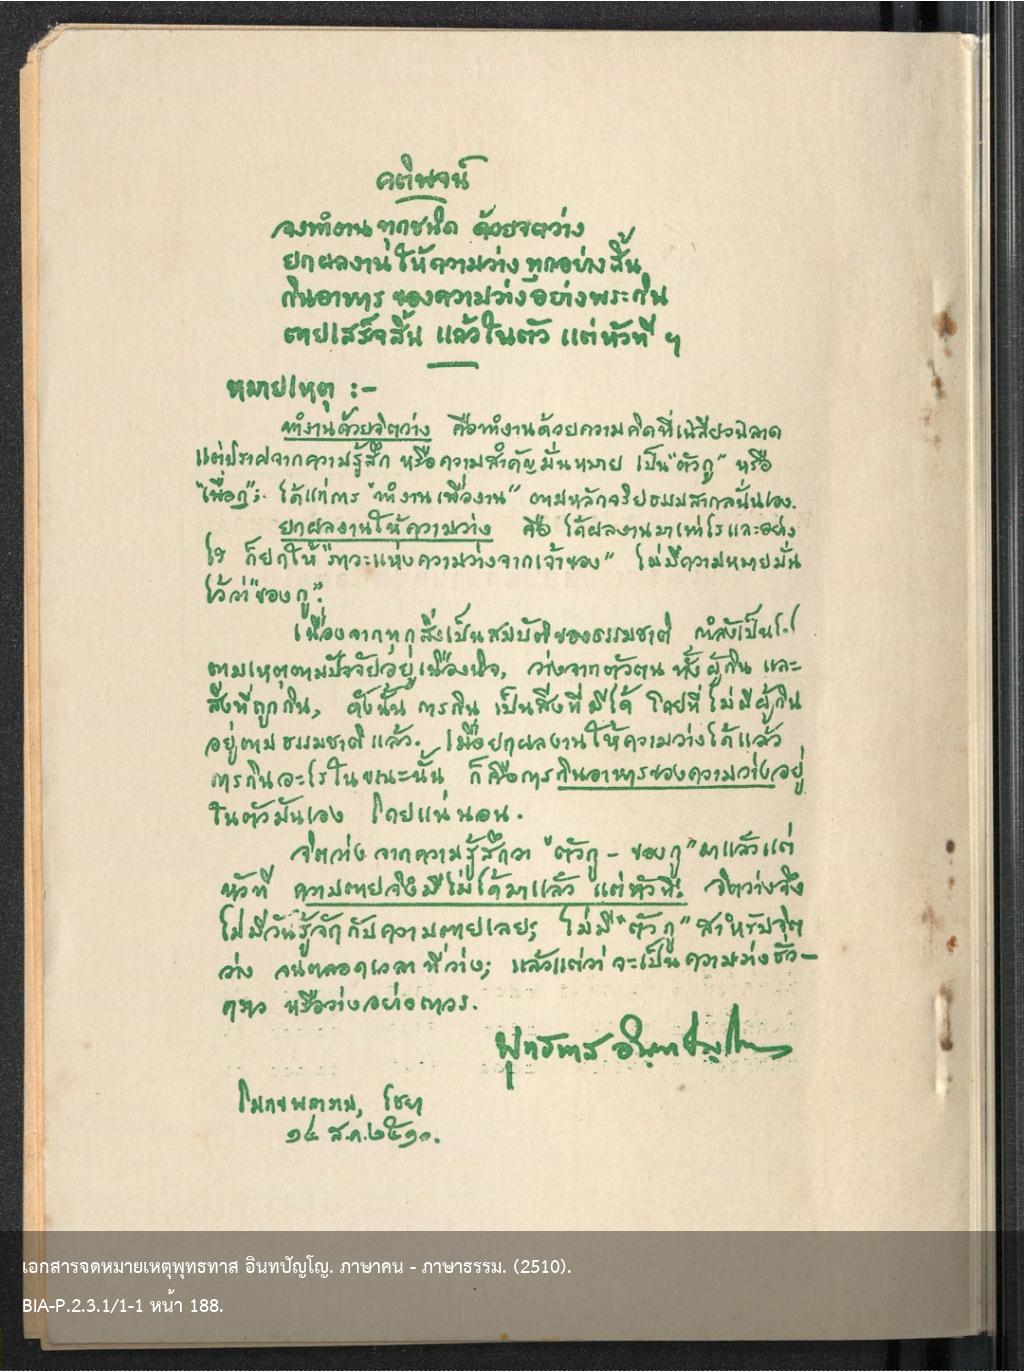 คติพจน์
จงทำงาน ทุกชนิด ด้วยจิตว่าง
ยกผลงาน ให้ความว่าง ทุกอย่างสิ้น
กินอาหาร ของความว่าง อย่างพระกิน
ตายเสร็จสิ้น แล้วในตัว แต่หัวที ฯ
หมายเหตุ :-
ทำงานด้วยจิตว่าง คือทำงานด้วยความคิดที่เฉลียวฉลาด
แต่ปราศจากความรู้สึก หรือความสำคัญมั่นหมาย เป็น "ตัวกู" หรือ
"เพื่อกู"; ได้แก่การ "ทำงานเพื่องาน" ตามหลักจริยธรรมสากลนั่นเอง.
ยกผลงานให้ความว่าง คือ ได้ผลงานมาเท่าไรและอย่าง
ไร ก็ยกให้ "ภาวะแห่งความว่างจากเจ้าของ" ไม่มีความหมายมั่น
ไว้ว่า "ของกู".
เนื่องจากทุกสิ่งเป็นสมบัติของธรรมชาติ กำลังเป็นไป
ตามเหตุตามปัจจัยอยู่เนืองนิจ, ว่างจากตัวตน ทั้งผู้กิน และ
สิ่งที่ถูกกิน, ดังนั้น การกิน เป็นสิ่งที่มีได้ โดยที่ไม่มีผู้กิน
อยู่ตามธรรมชาติแล้ว. เมื่อยกผลงานให้ความว่างได้แล้ว
การกินอะไรในขณะนั้น ก็คือการกินอาหารของความว่างอยู่
ในตัวมันเอง โดยแน่นอน.
จิตว่าง จากความรู้สึกว่า "ตัวกู - ของกู" มาแล้วแต่
หัวที ความตายจึงมีไม่ได้มาแล้ว แต่หัวที; จิตว่างจึง
ไม่มีวันรู้จักกับความตายเลย; ไม่มี "ตัวกู" สำหรับจิต
ว่าง จนตลอดเวลาที่ว่าง; แล้วแต่ว่าจะเป็นความว่างชั่ว-
คราว หรือว่างอย่างถาวร.
พุทธทาส อินฺทปญฺโญ
โมกขพลาราม, ไชยา
๑๔ ส.ค. ๒๕๑๐.
เอกสารจดหมายเหตุพุทธทาส อินทปัญโญ. ภาษาคน - ภาษาธรรม. (2510).
BIA-P.2.3.1/1-1 หน้า 188.